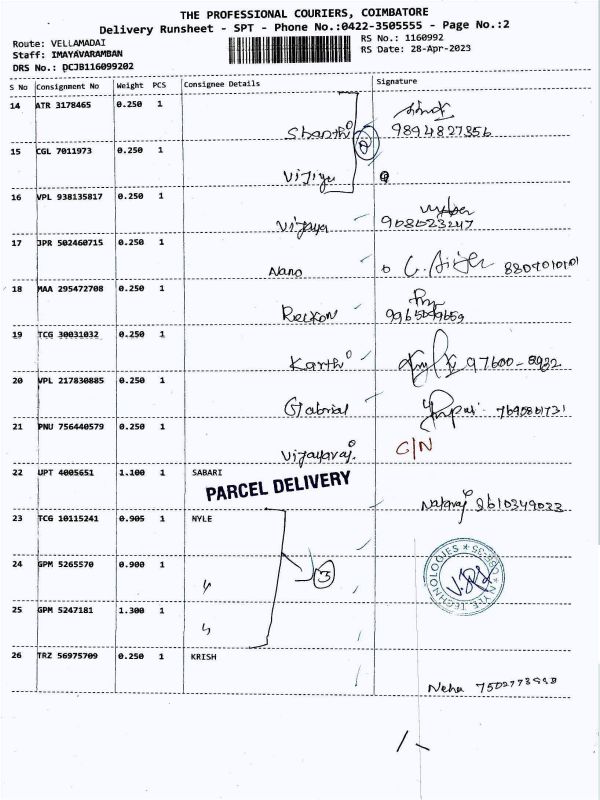 THE PROFESSIONAL COURIERS, COIMBATORE
Delivery Runsheet - SPT - Phone No.:0422-3505555 - Page No.:2
Route: VELLAMADAI
Staff: IMAYAVARAMBAN
DRS No.: DCJB116099202
RS No.: 1160992
RS Date: 28-Apr-2023
S No Consignment No Weight PCS Consignee Details Signature
14 ATR 3178465 0.250 1
Shanthi 9894827356
2
15 CGL 7011973 0.250 1
16 VPL 938135817 0.250 1
Vijaya
17 JPR 502460715 0.250 1
Nano
18 MAA 295472708 0.250 1
19 TCG 30031032 0.250 1
Karthi 97600-8932
20 VPL 217830885 0.250 1
Gabrial
21 PNU 756440579 0.250 1
Vijayaraj. C/N
22 UPT 4005651 1.100 1 SABARI
PARCEL DELIVERY
Nataraj
23 TCG 10115241 0.905 1 NYLE
24 GPM 5265570 0.900 1
3
25 GPM 5247181 1.300 1
26 TRZ 56975709 0.250 1 KRISH
Neha
1-